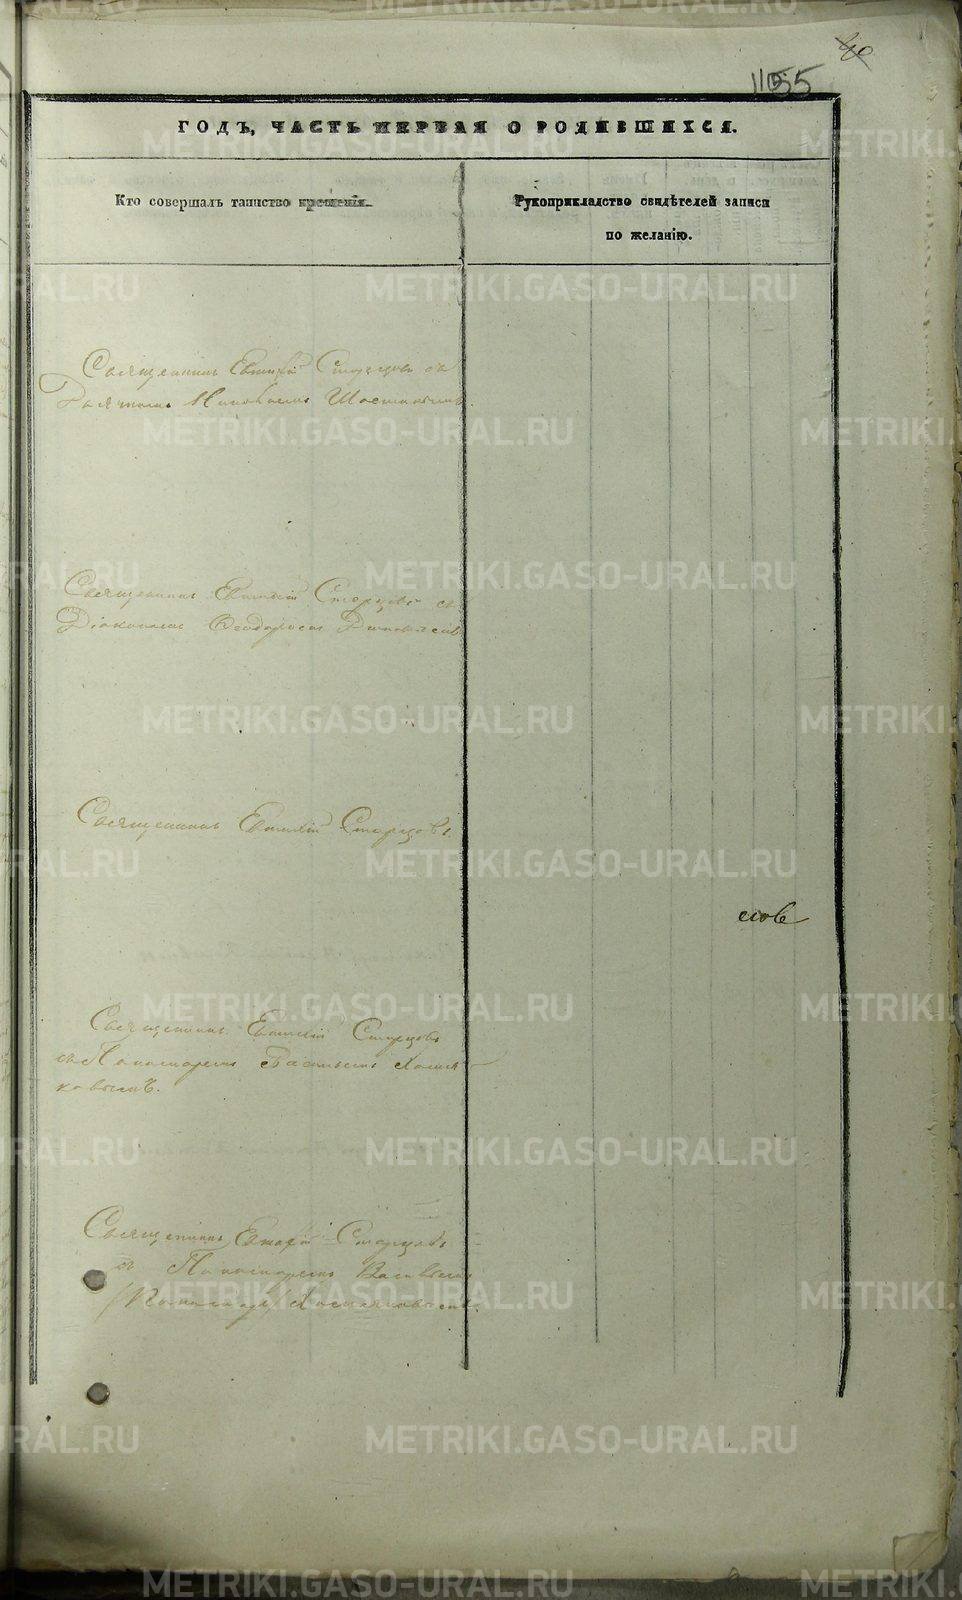 1155
ГОДЪ, ЧАСТЬ ПЕРВАЯ О РОДИВШИХСЯ.
Кто совершалъ таинство крещенія.
Рукоприкладство свидѣтелей записи
по желанію.
Священникъ Евтихій Старцовъ съ
Николаемъ
Священникъ Евтихій Старцовъ съ
Діакономъ Ѳеодоромъ
Священникъ Евтихій Старцовъ.
слов
Священникъ Евтихій Старцовъ
съ Пономаремъ Васильемъ Хомя-
ковымъ.
Священникъ Евтихій Старцовъ
съ Пономаремъ Васильемъ
Хомяковымъ
METRIKI.GASO-URAL.RU